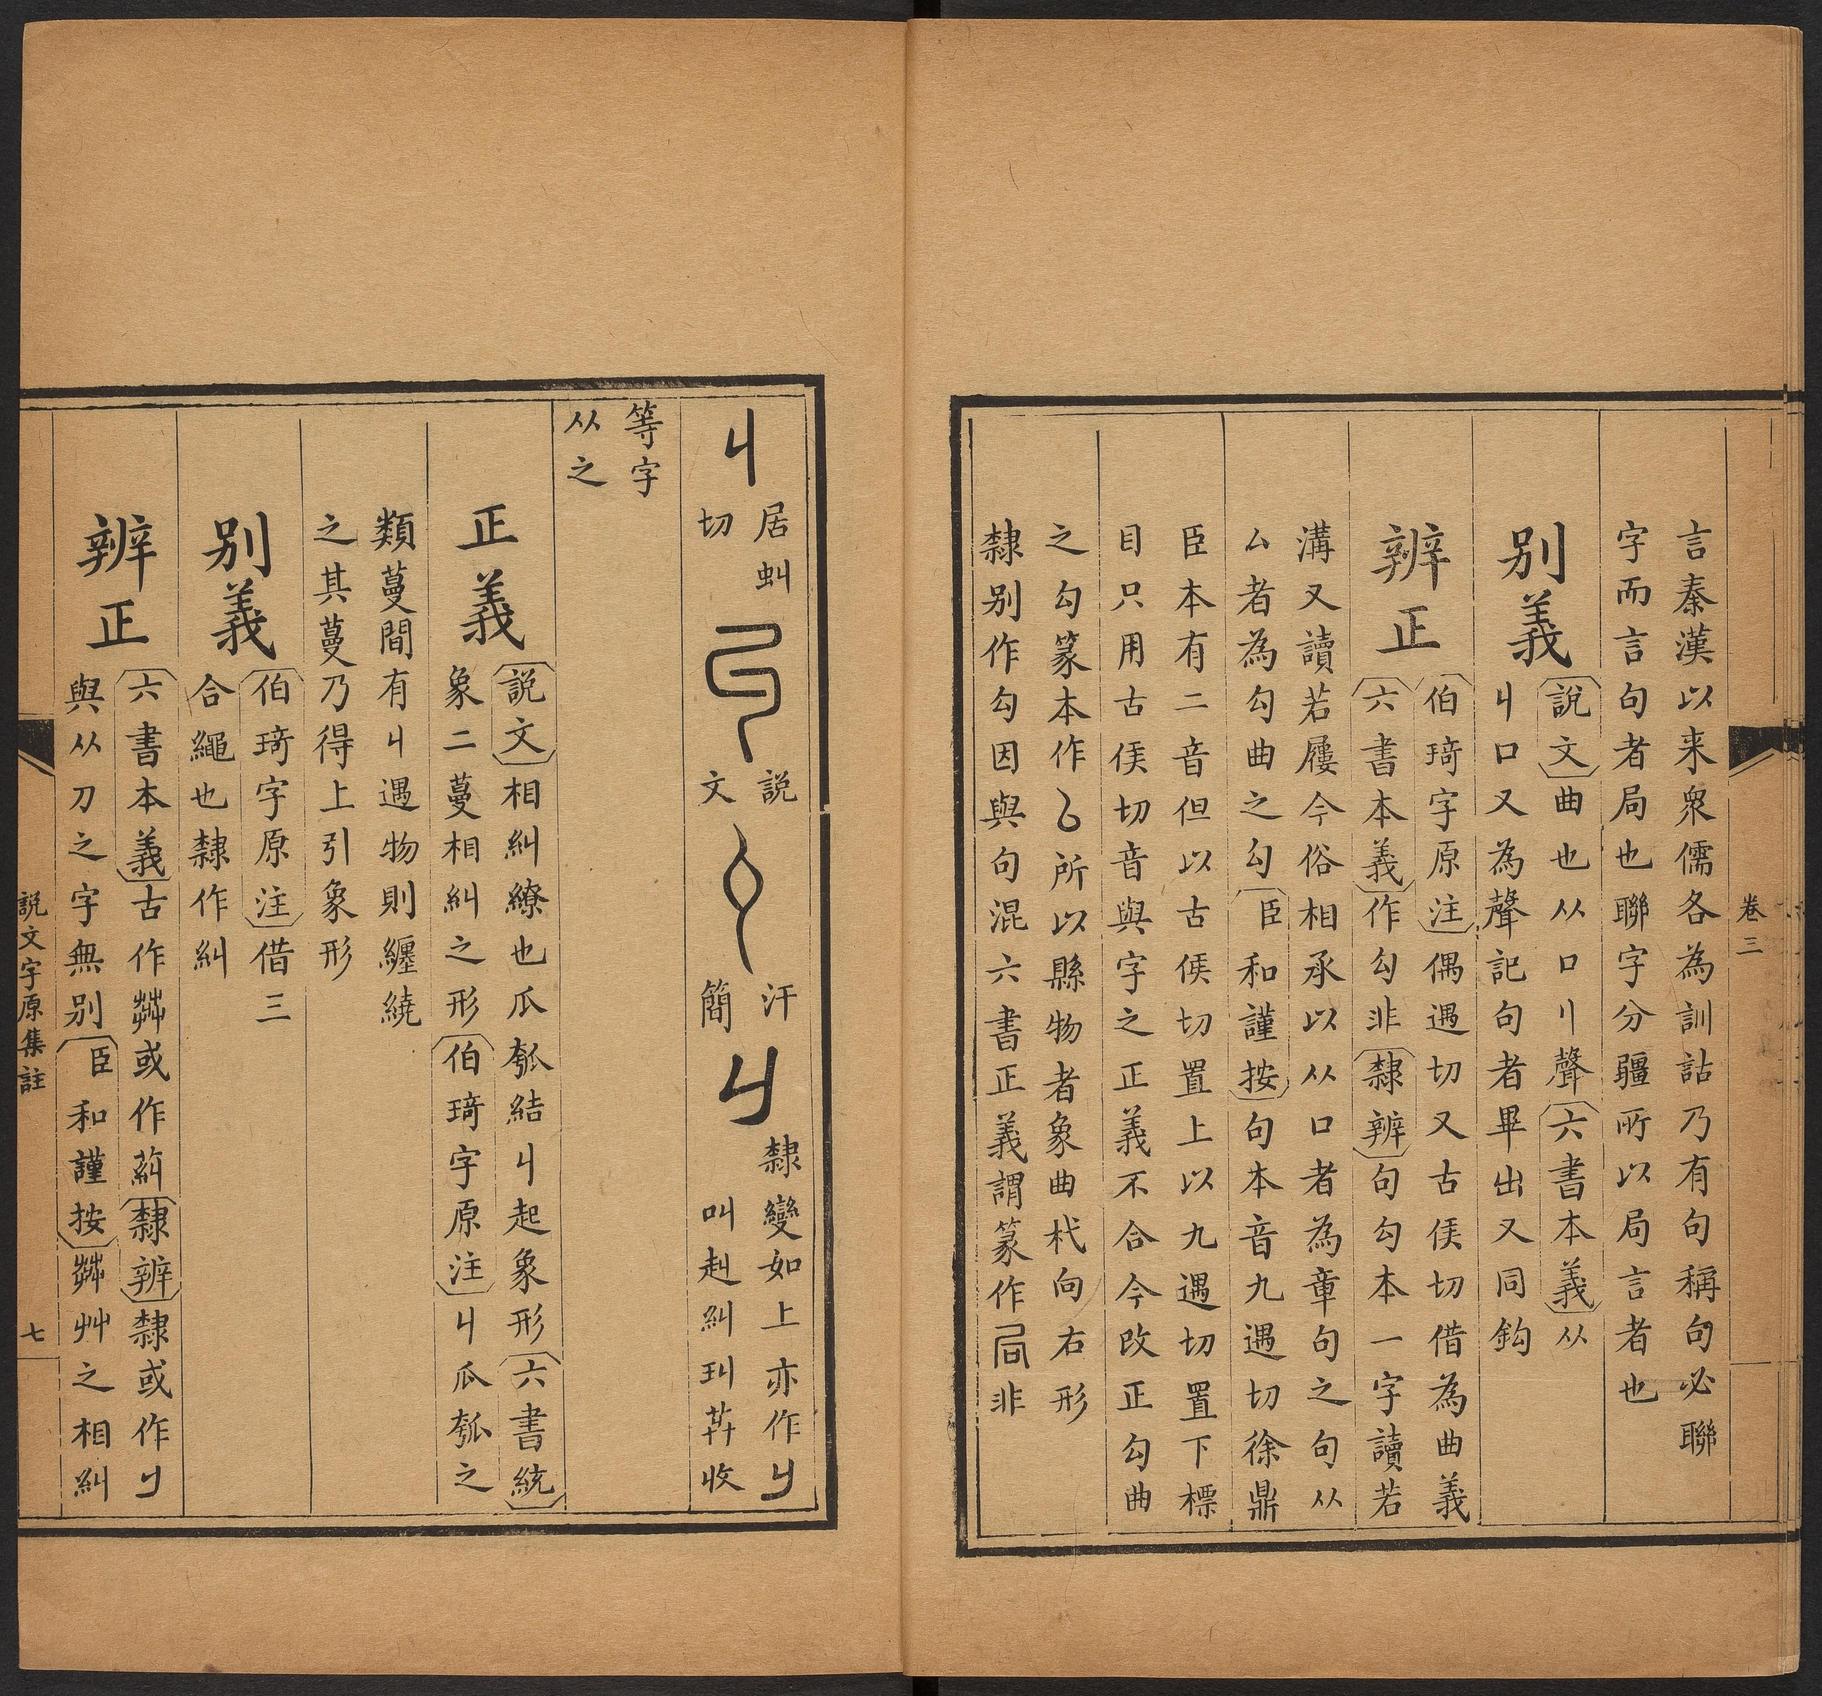 言秦漢以来衆儒各為訓詁乃有句稱句必聯
字而言句者局也聯字分疆所以局言者也
别義
說文曲也从口丩聲六書本義从
丩口又為聲記句者畢出又同鈎
伯琦字原注偶遇切又古侯切借為曲義
辨正
六書本義作勾非隸辨句勾本一字讀若
溝又讀若屨今俗相承以从口者為章句之句从
厶者為勾曲之勾臣和謹按句本音九遇切徐鼎
臣本有二音但以古侯切置上以九遇切置下標
目只用古侯切音與字之正義不合今改正勾曲
之勾篆本作𠄌所以縣物者象曲杙向右形
隸别作勾因與句混六書正義謂篆作局非
卷三
丩
居虯
切
說
文
汗
簡
隸變如上亦作丩
叫赳糾虯荓收
等字
从之
正義
說文相糾繚也瓜瓠結丩起象形六書統
象二蔓相糾之形伯琦字原注丩瓜瓠之
類蔓間有丩遇物則纏繞
之其蔓乃得上引象形
别義
伯琦字原注借三
合繩也隸作糾
辨正
六書本義古作茻或作䓘隸辨隸或作丩
與从刀之字無别臣和謹按茻艸之相糾
說文字原集註
七